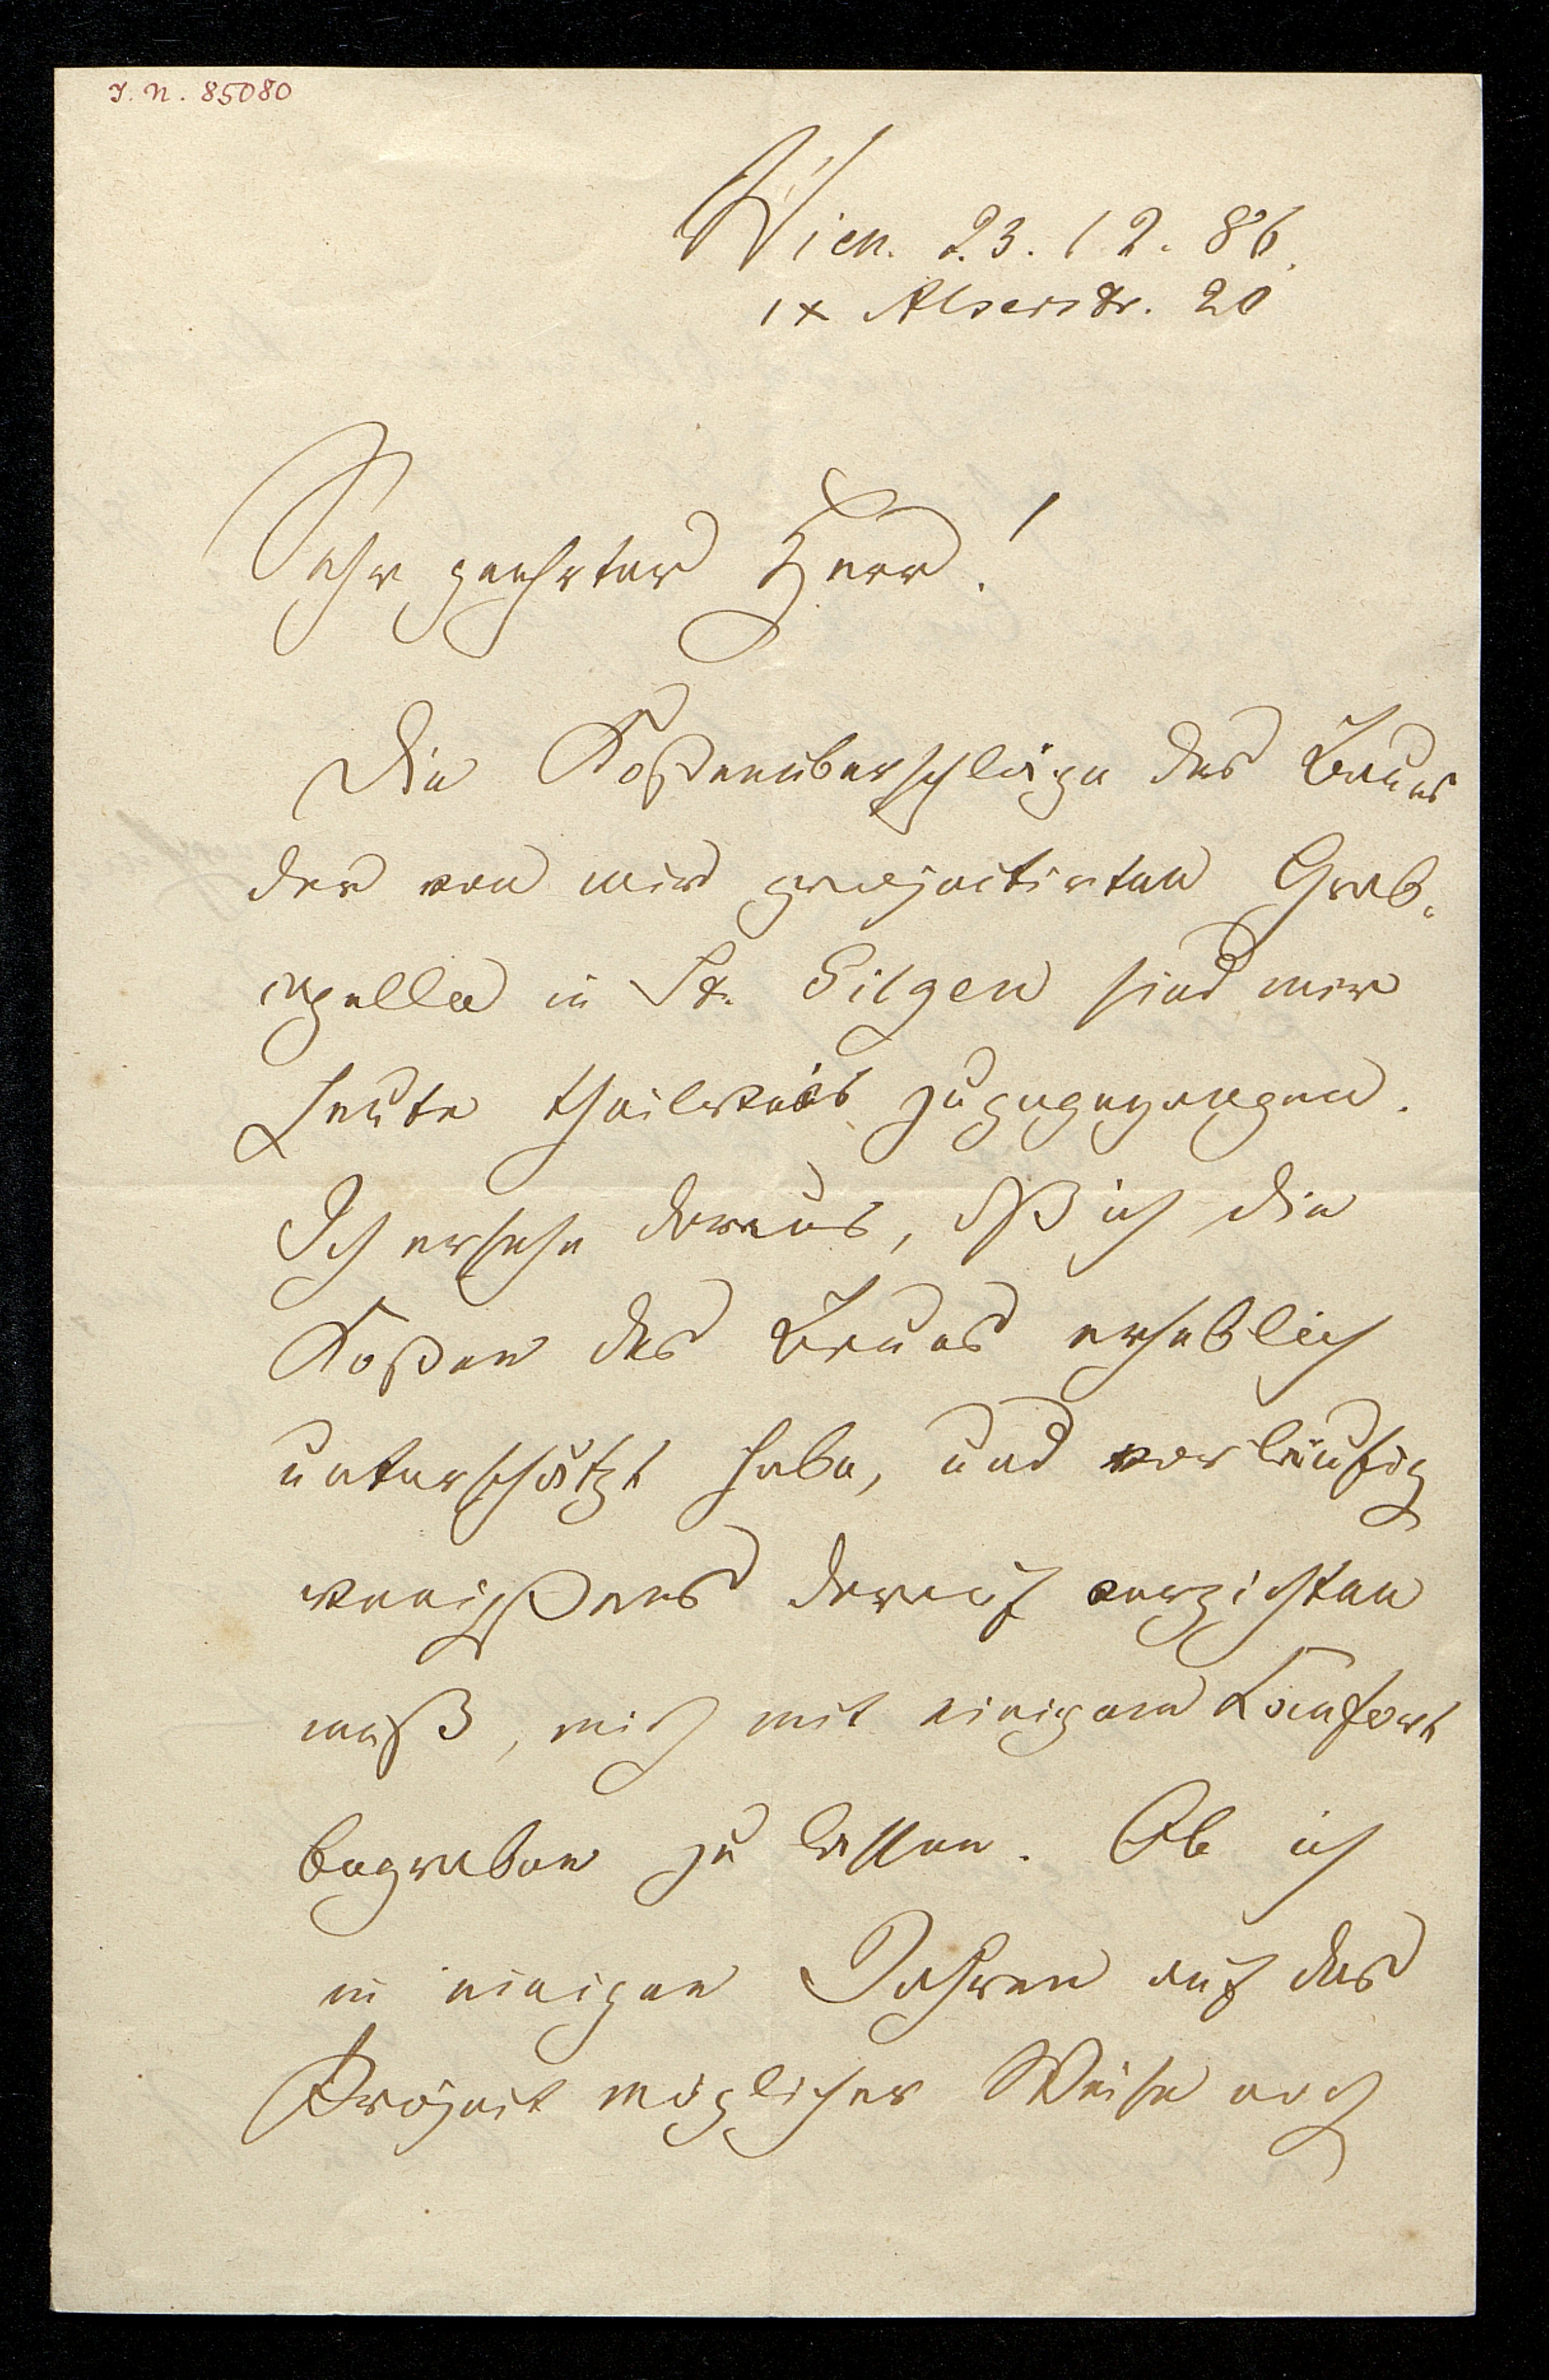 I. N. 85080
Wien. 23. 12. 86.
IX Alserstr. 20
Sehr geehrter Herr!
Die Kostenüberschläge des Baues
der von mir projectirten Grab-
capelle in St. Gilgen sind mir
heute theilweis zugegangen.
Ich ersehe daraus, dß ich die
Kosten des Baues erheblich
unterschätzt habe, und vorläufig
wenigstens darauf verzichten
muß, mich mit einigem Comfort
begraben zu lassen. Ob ich
in einigen Jahren auf das
Project möglicher Weise noch